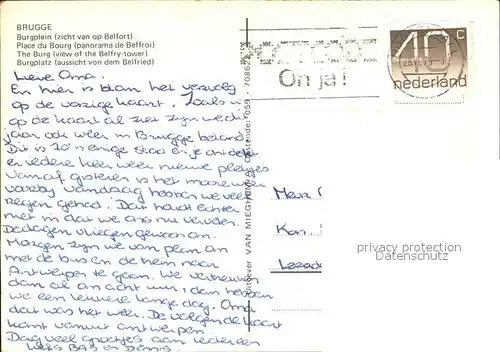 BRUGGE
Burgplein (zicht van op Belfort)
Place du Bourg (panorama de Beffroi)
The Burg (view of the Belfry-tower)
Burgplatz (aussicht von dem Belfried)
Lieve Oma.
En hier is dan het vervolg
op de vorige kaart. Zoals u
op de kaart al ziet zijn we dit
jaar ook weer in Brugge beland.
Dit is zo'n enige stad en je ontdekt
er iedere keer weer nieuwe plekjes
Vanaf gisteren is het mooi weer
voorbij vandaag hebben we veel
regen gehad. Dat houdt echter
niet in dat we ons nu vervelen.
De dagen vliegen gewoon om.
Morgen zijn we van plan om
met de bus en de trein naar
Antwerpen te gaan. We vertrekken
dan al om acht uur; dan hebben
we een lekkere lange dag. Oma
dat was het weer. De volgende kaart
komt vanuit Antwerpen.
Dag veel groetjes aan iedereen
LIEFS BAS en DENNIS.
Uitgever VAN MIEGHEM A. Oostende: 059 - 70862
On ja!
40 c
nederland
Mevr
Kon.
privacy protection
Datenschutz